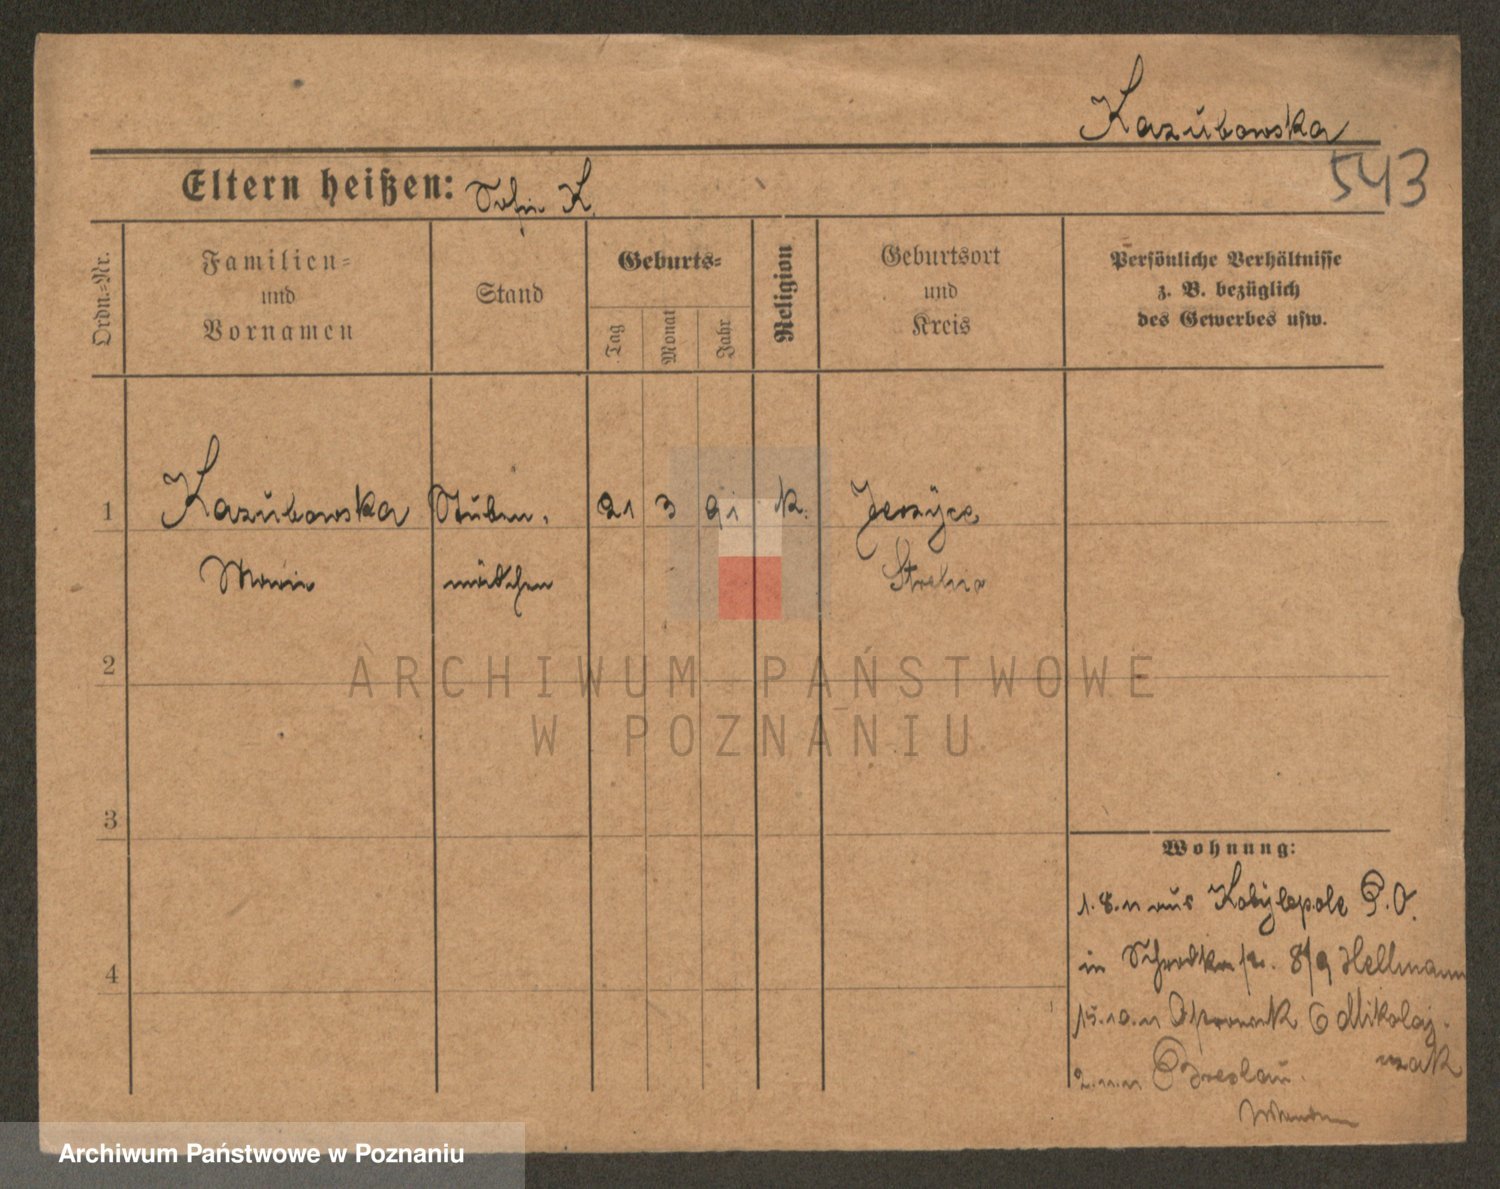 Kazubowska
543
Eltern heißen: Sofie K.
Ordn.-Nr.
Familien-
und
Vornamen
Stand
Geburts-
Tag
Monat
Jahr
Religion
Geburtsort
und
Kreis
Persönliche Verhältnisse
z. B. bezüglich
des Gewerbes usw.
1 Kazubowska Stuben- 21 3 91 k. Jerzyce
Marie mädchen Strelno
2
3
4
Wohnung:
1.8.11 aus Kobylepole P.O.
in 8/9 Hellmann
15.10.11 6 Mikolaj-
czak
2.11.11 Breslau.
ARCHIWUM PAŃSTWOWE
W POZNANIU
Archiwum Państwowe w Poznaniu